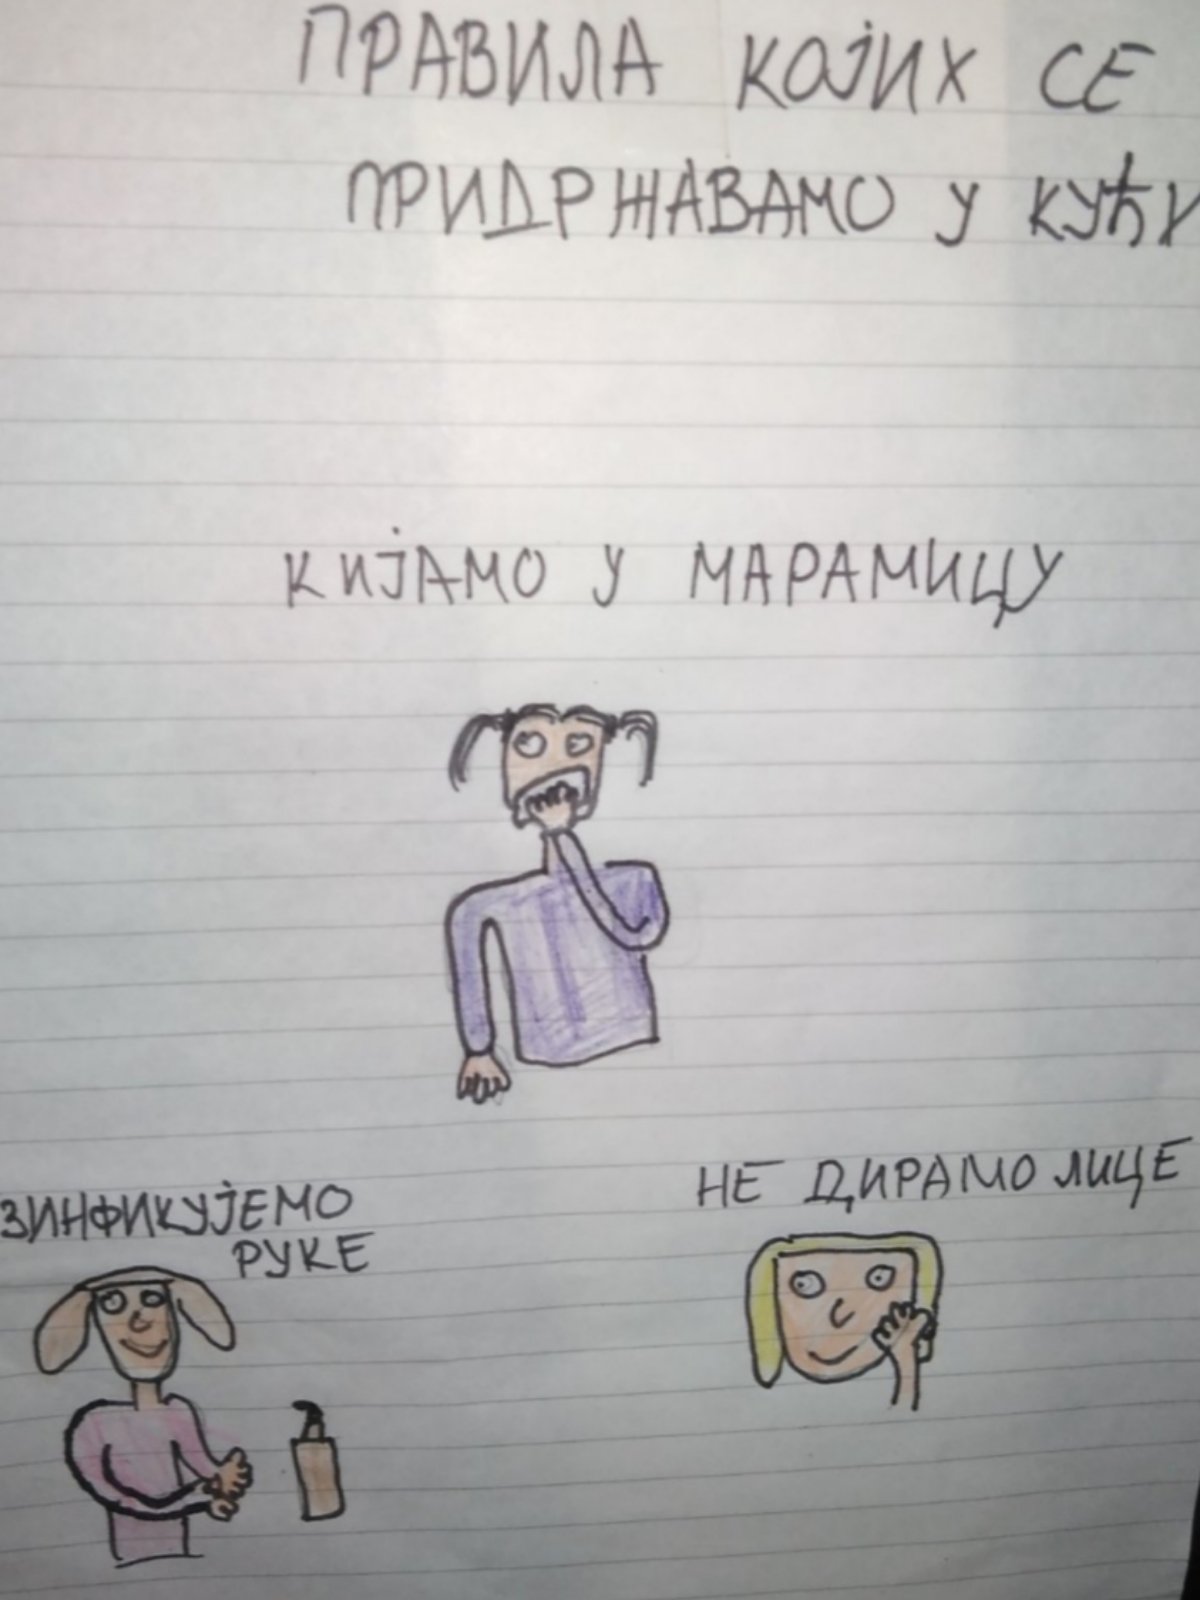 ПРАВИЛА КОЈИХ СЕ
ПРИДРЖАВАМО У КУЋИ
КИЈАМО У МАРАМИЦУ
ЗИНФИКУЈЕМО
РУКЕ
НЕ ДИРАМО ЛИЦЕ